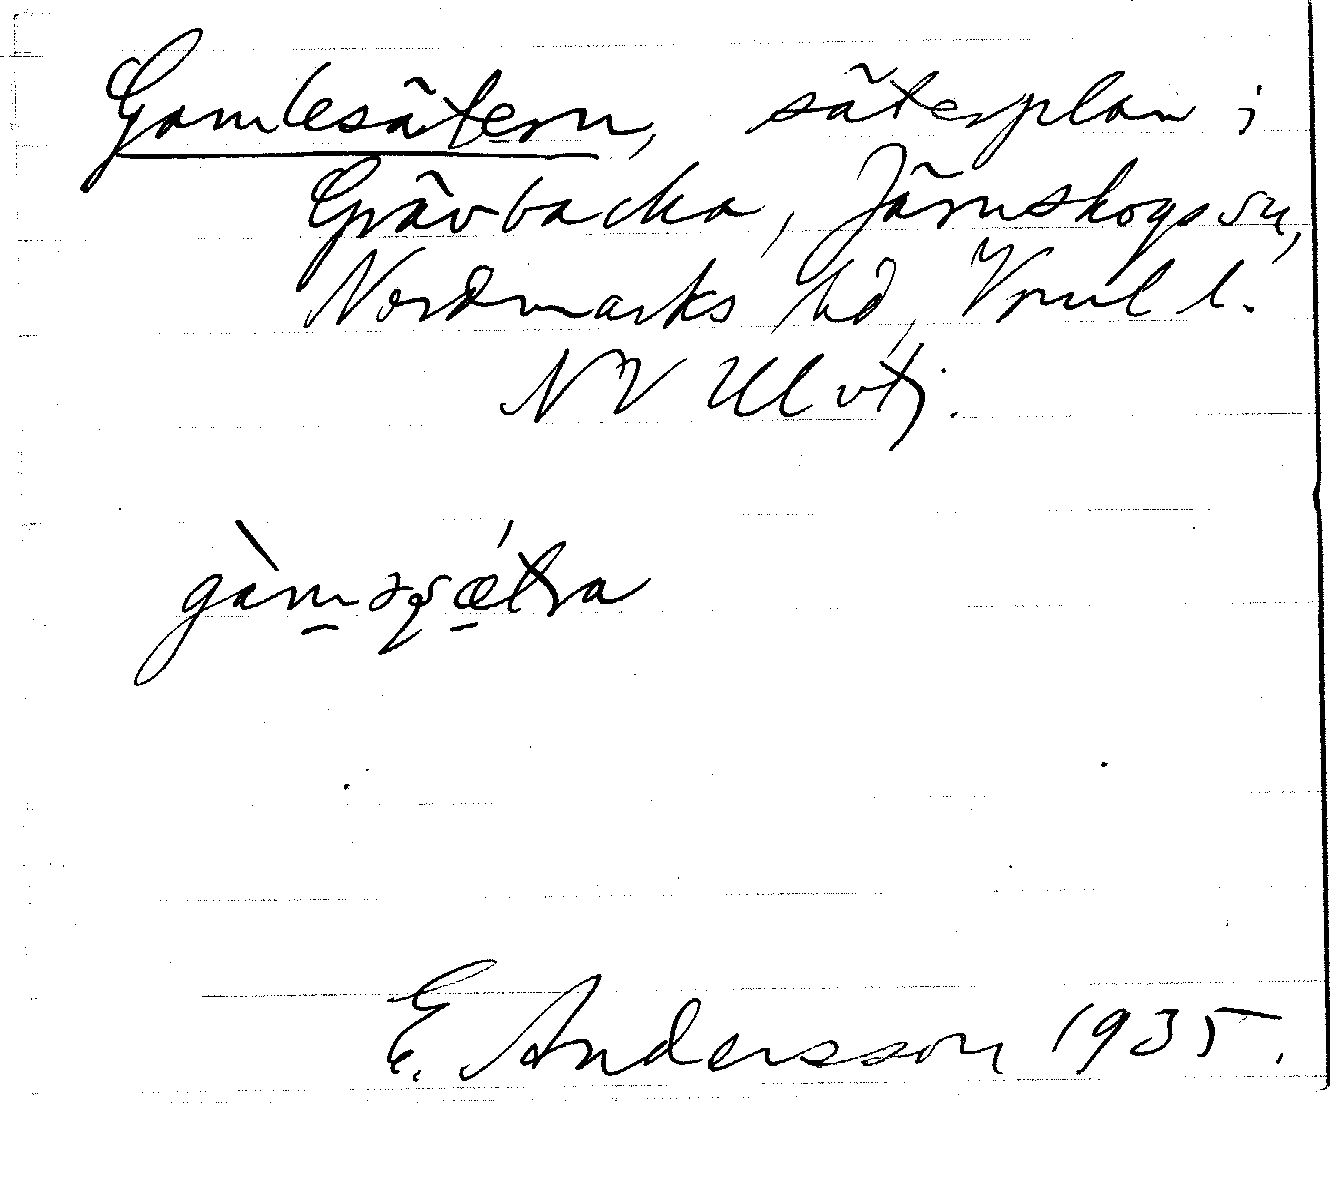 Gamlesätern, säterplan i
Grävbacka, Järnskogs sn,
Nordmarks hd, Vrml l.
NV Ulvtj.
gàməʂǽtra
E. Andersson 1935.